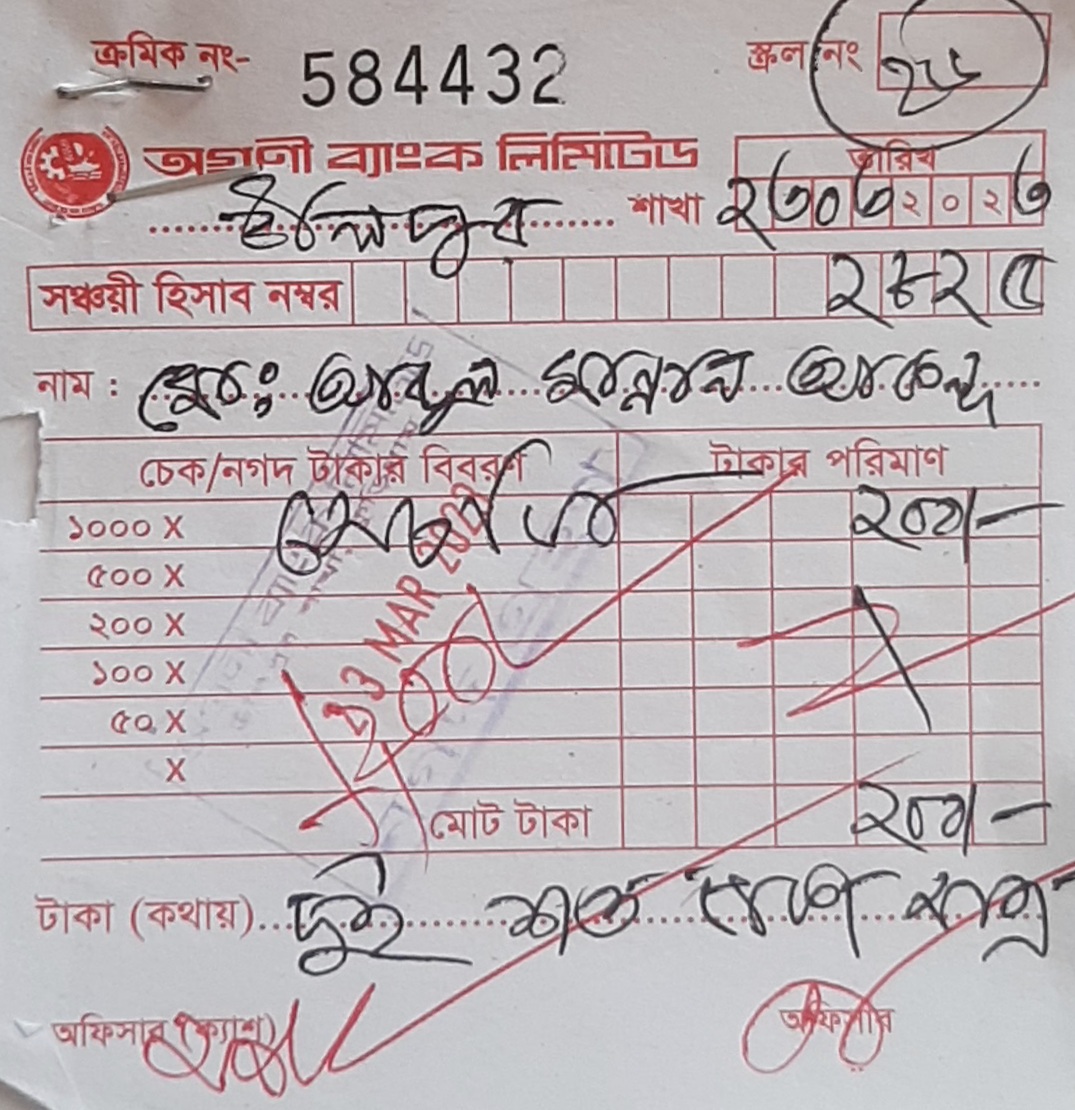 ক্রমিক নং- 584432
স্ক্রল নং
অগ্রণী ব্যাংক লিমিটেড
তারিখ
শাখা ২৩০৩২০২৩
সঞ্চয়ী হিসাব নম্বর ২৮২৫
নাম : মোঃ আবদুল মান্নান আকন্দ
চেক/নগদ টাকার বিবরণ টাকার পরিমাণ
১০০০ X ২০০/-
৫০০ X
২০০ X
23 MAR 2023
১০০ X
200
৫০ X
X
মোট টাকা ২০০/-
টাকা (কথায়) দুই শত টাকা মাত্র
অফিসার (ক্যাশ) অফিসার